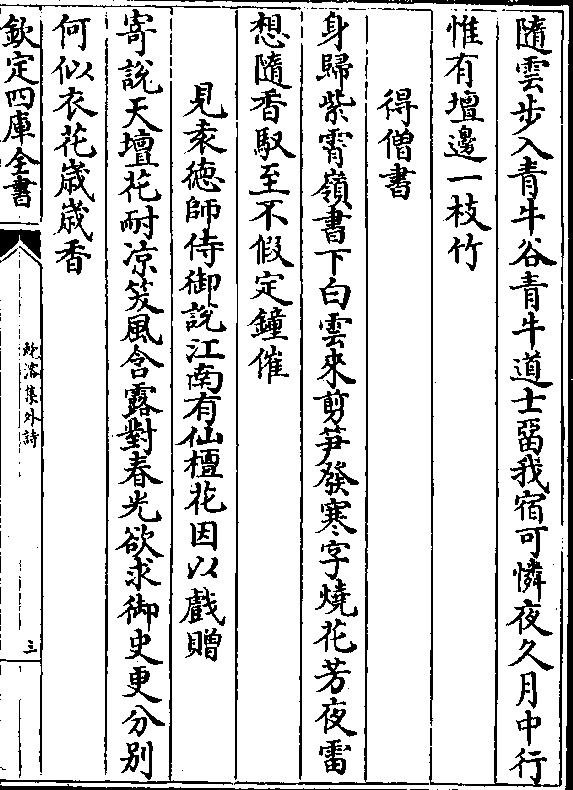 隨雲步入青牛谷青牛道士畱我宿可憐夜久月中行
惟有壇邊一枝竹
得僧書
身歸紫霄嶺書下白雲來剪笋發寒字燒花芳夜雷
想隨香馭至不假定鐘催
見袁德師侍御說江南有仙檀花因以戲贈
寄說天壇花耐凉笈風含露對春光欲求御史更分别
何似衣花歲歲香
欽定四庫全書
鮑溶集外詩
三